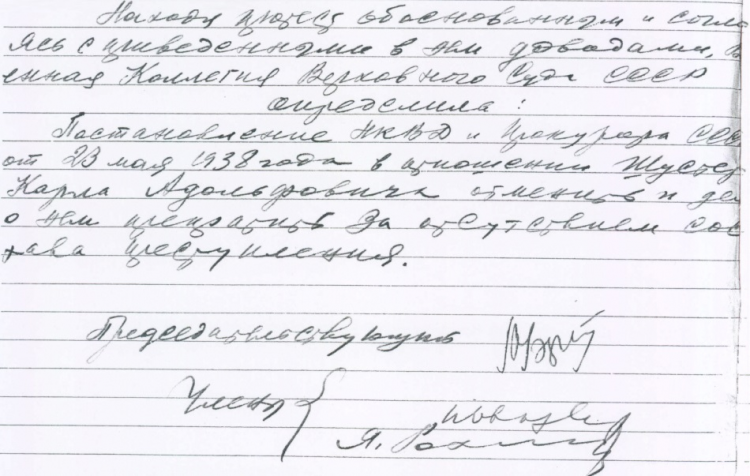 Находя протест обоснованным и согла
ясь с приведенными в нем доводами, В
енная Коллегия Верховного Суда СССР
определила:
Постановление НКВД и Прокурора ССС
от 23 мая 1938 года в отношении Шустер
Карла Адольфовича отменить и дел
о нем прекратить за отсутствием сос
тава преступления.
Председательствующий
Члены
Я.